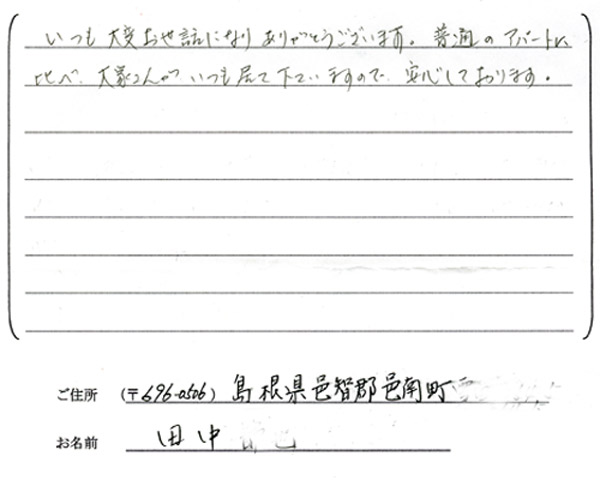 いつも大変お世話になりありがとうございます。普通のアパートに
比べ、大家さんがいつも居て下さいますので、安心しております。
ご住所 (〒696-0506) 島根県邑智郡邑南町
お名前 田中